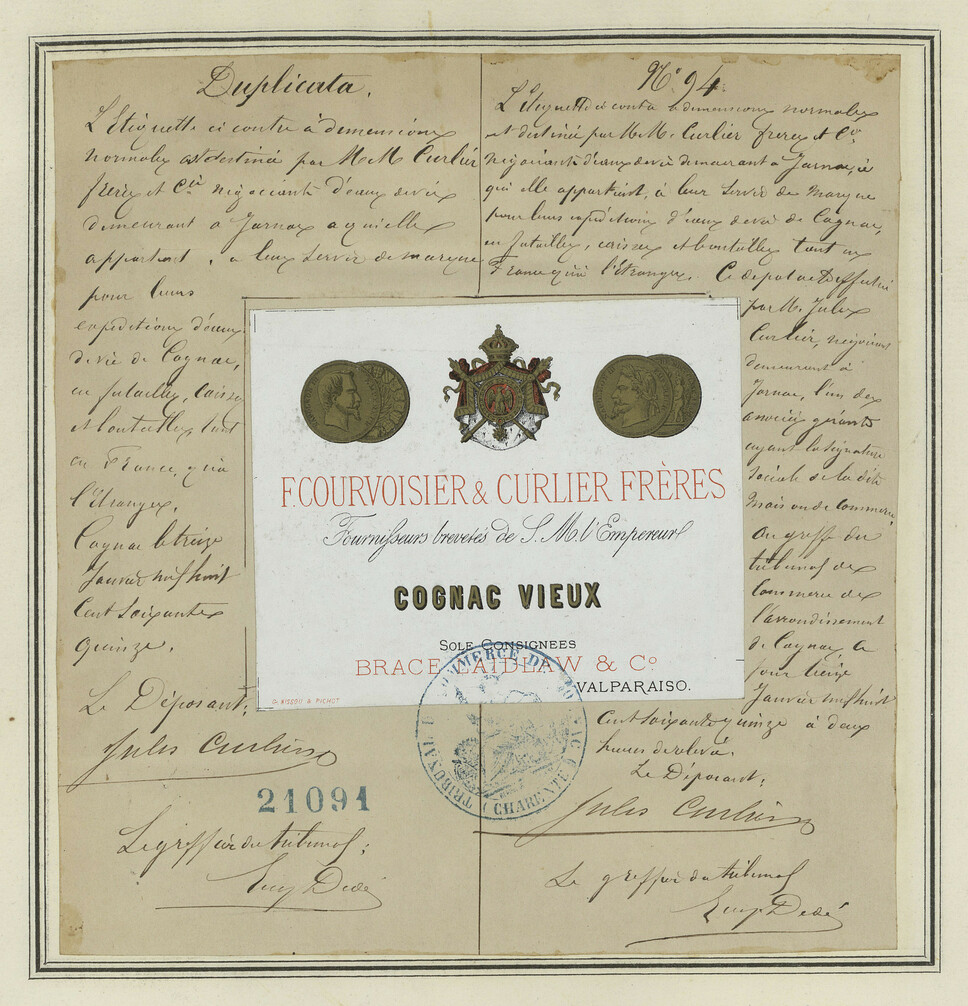 Duplicata.
L'Etiquette ci contre à dimensions
normales est destinée par M.M. Curlier
frères et Cie négociants d'eaux de vie
demeurant à Jarnac a qui elle
appartient, a leur servir de marque
pour leurs
expéditions d'eaux
de vie de Cognac,
en futailles, caisses
et bouteilles, tant
en France, qu'à
l'Etranger.
Cognac le treize
Janvier mil huit
cent soixante
quinze.
Le Déposant;
Jules Curlier
21091
Le greffier du tribunal;
N° 94
L'Etiquette ci contre à dimensions normales
est destinée par M.M. Curlier frères et Cie
négociants d'eaux de vie demeurant à Jarnac, à
qui elle appartient, à leur servir de marque
pour leurs expéditions d'eaux de vie de Cognac,
en futailles, caisses et bouteilles tant en
France qu'à l'étranger. Ce dépôt a été effectué
par M. Jules
Curlier, négociant
demeurant à
Jarnac, l'un des
associés gérants
ayant la signature
sociale de la dite
maison de commerce,
au greffe du
tribunal de
Commerce de
l'arrondissement
de Cognac, le
jour treize
Janvier mil huit
cent soixante quinze à deux
heures de relevée.
Le Déposant;
Jules Curlier
Le greffier du tribunal
F. COURVOISIER & CURLIER FRÈRES
Fournisseurs brevetés de S. M. l'Empereur
COGNAC VIEUX
SOLE CONSIGNEES
BRACE LAIDLAW & Co
VALPARAISO.
TRIBUNAL DE COMMERCE DE COGNAC (CHARENTE)